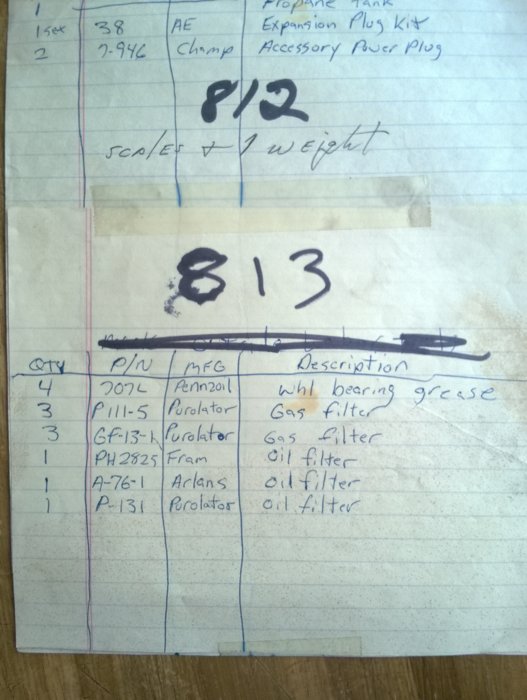 1 Propane Tank
1 set 38 AE Expansion Plug Kit
2 7-946 Champ Accessory Power Plug
812
SCALES + 1 WEIGHT
813
QTY P/N MFG Description
4 707L Pennzoil Whl bearing grease
3 P111-5 Purolator Gas filter
3 GF-13-1 Purolator Gas filter
1 PH2825 Fram Oil filter
1 A-76-1 Arlans Oil filter
1 P-131 Purolator Oil filter